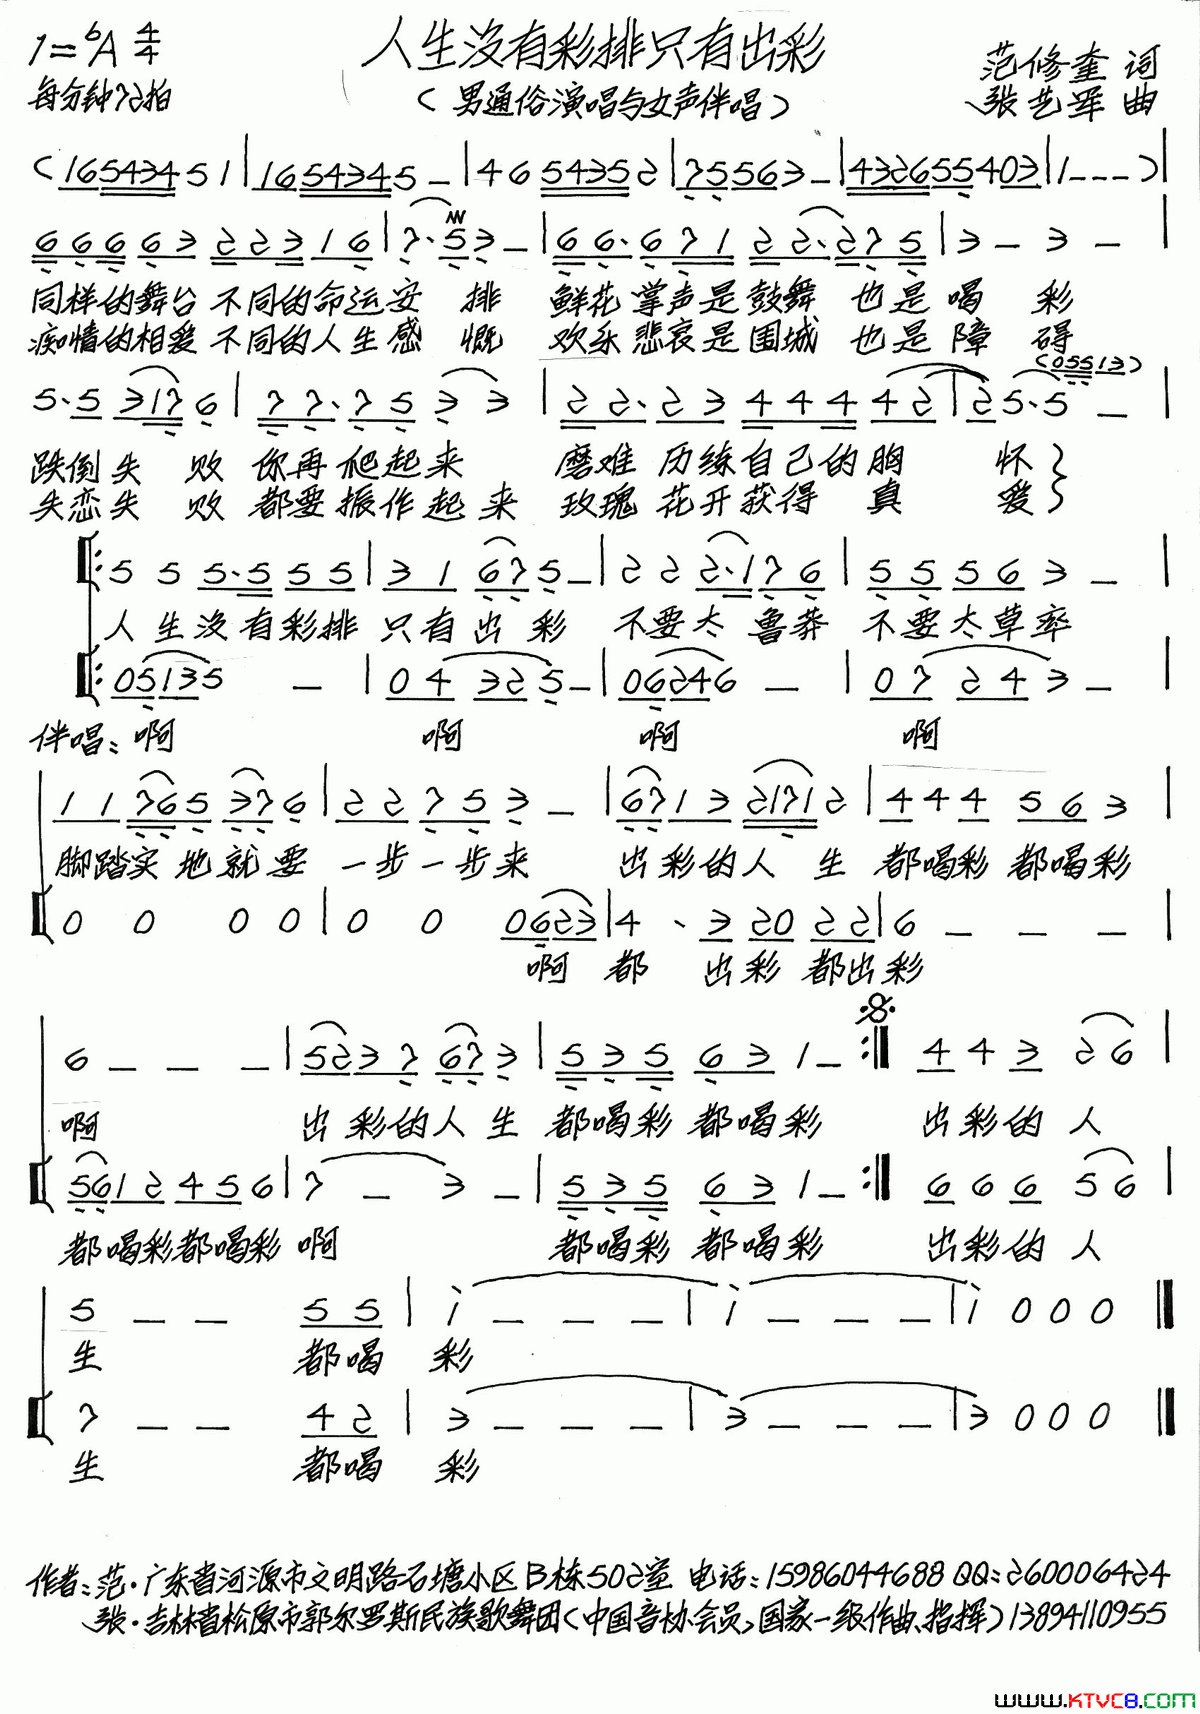 1=♭A 4/4 人生没有彩排只有出彩 范修奎 词
每分钟72拍 (男通俗演唱与女声伴唱) 张艺军 曲
(16543451|1654345–|4654352|75563–|432655403|1---)|
66663 223 16|7·53–|66·671 22·275|3–3–|
同样的舞台 不同的命运安 排 鲜花 掌声是鼓舞 也是喝 彩
痴情的相爱 不同的人生感 慨 欢乐 悲哀是围城 也是障 碍
(05513)
5·5 3176|77·7533|22·23 44442|25·5–|
跌倒失 败 你再 爬起来 磨难 历练自己的胸 怀}
失恋失 败 都要 振作起来 玫瑰 花开获得 真 爱}
‖:55 5·555|31 675–|222·176|55563–|
人生没有彩排 只有出彩 不要太 鲁莽 不要太草率
‖:05135 –|04 325–|06246 –|07 243–|
伴唱:啊 啊 啊 啊
11 765 376|22753–|6713 21712|444 563|
脚踏实 地就要 一步一步来 出彩的人 生 都喝彩 都喝彩
0 0 0 0|0 0 0623|4 · 3 20 22|6 – – –|
啊 都 出彩 都出彩
6 – – –|5237 673|535 631–:‖ 443 26|
啊 出彩的人生 都喝彩 都喝彩 出彩的 人
5612456|7 – 3 –|535 631–:‖ 666 56|
都喝彩都喝彩 啊 都喝彩 都喝彩 出彩的 人
5 – – 55|i – – –|i – – –|i 000‖
生 都喝 彩
7 – – 42|3 – – –|3 – – –|3 000‖
生 都喝 彩
作者:范·广东省河源市文明路石塘小区B栋502室 电话:15986044688 QQ:260006424
张·吉林省松原市郭尔罗斯民族歌舞团(中国音协会员,国家一级作曲、指挥)13894110955
www.KTVC8.com